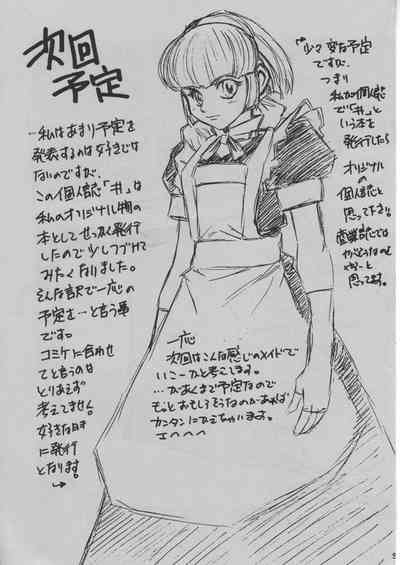 次回
予定
…私はあまり予定を
発表するのは好きじゃ
ないのですが、
この個人誌「井」は
私のオリジナル物の
本としてせっかく発行
したので少しつづけて
みたくなりました。
そんな訳で一応の
予定を…と言う事
です。
コミケに合わせ
てと言うのは
とりあえず
考えてません。
好きな時
に発行
となります。
→
少々変な予定
ですが、
つまり
私が個人誌
で「井」と
いう本を
発行したら
オリジナル
の
個人誌と
思って下さい。
商業誌では
思ってます。
一応
次回はこんな感じのメイドで
いこーかと考えてます。
…があくまで予定なので
もっとおもしろそうなのがあれば
カンタンにかえちゃいます。
エヘヘヘ